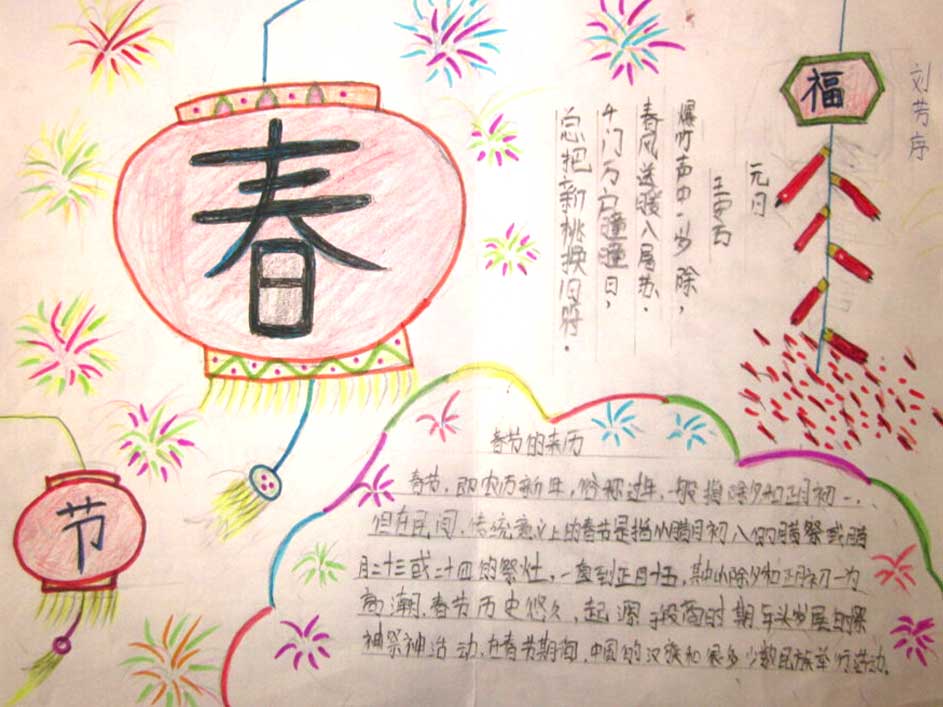 春
节
福
刘芳序
元日
王安石
爆竹声中一岁除，
春风送暖入屠苏。
千门万户瞳瞳日，
总把新桃换旧符。
春节的来历
春节，即农历新年，俗称过年，一般指除夕和正月初一，
但在民间，传统意义上的春节是指从腊月初八的腊祭或腊
月二十三或二十四的祭灶，一直到正月十五，其中以除夕和正月初一为
高潮。春节历史悠久，起源于殷商时期年头岁尾的祭
神祭神活动。在春节期间，中国的汉族和很多少数民族举行活动。